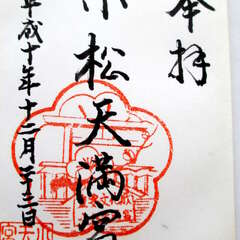 奉拝
小松天満宮
平成十年十二月二十三日